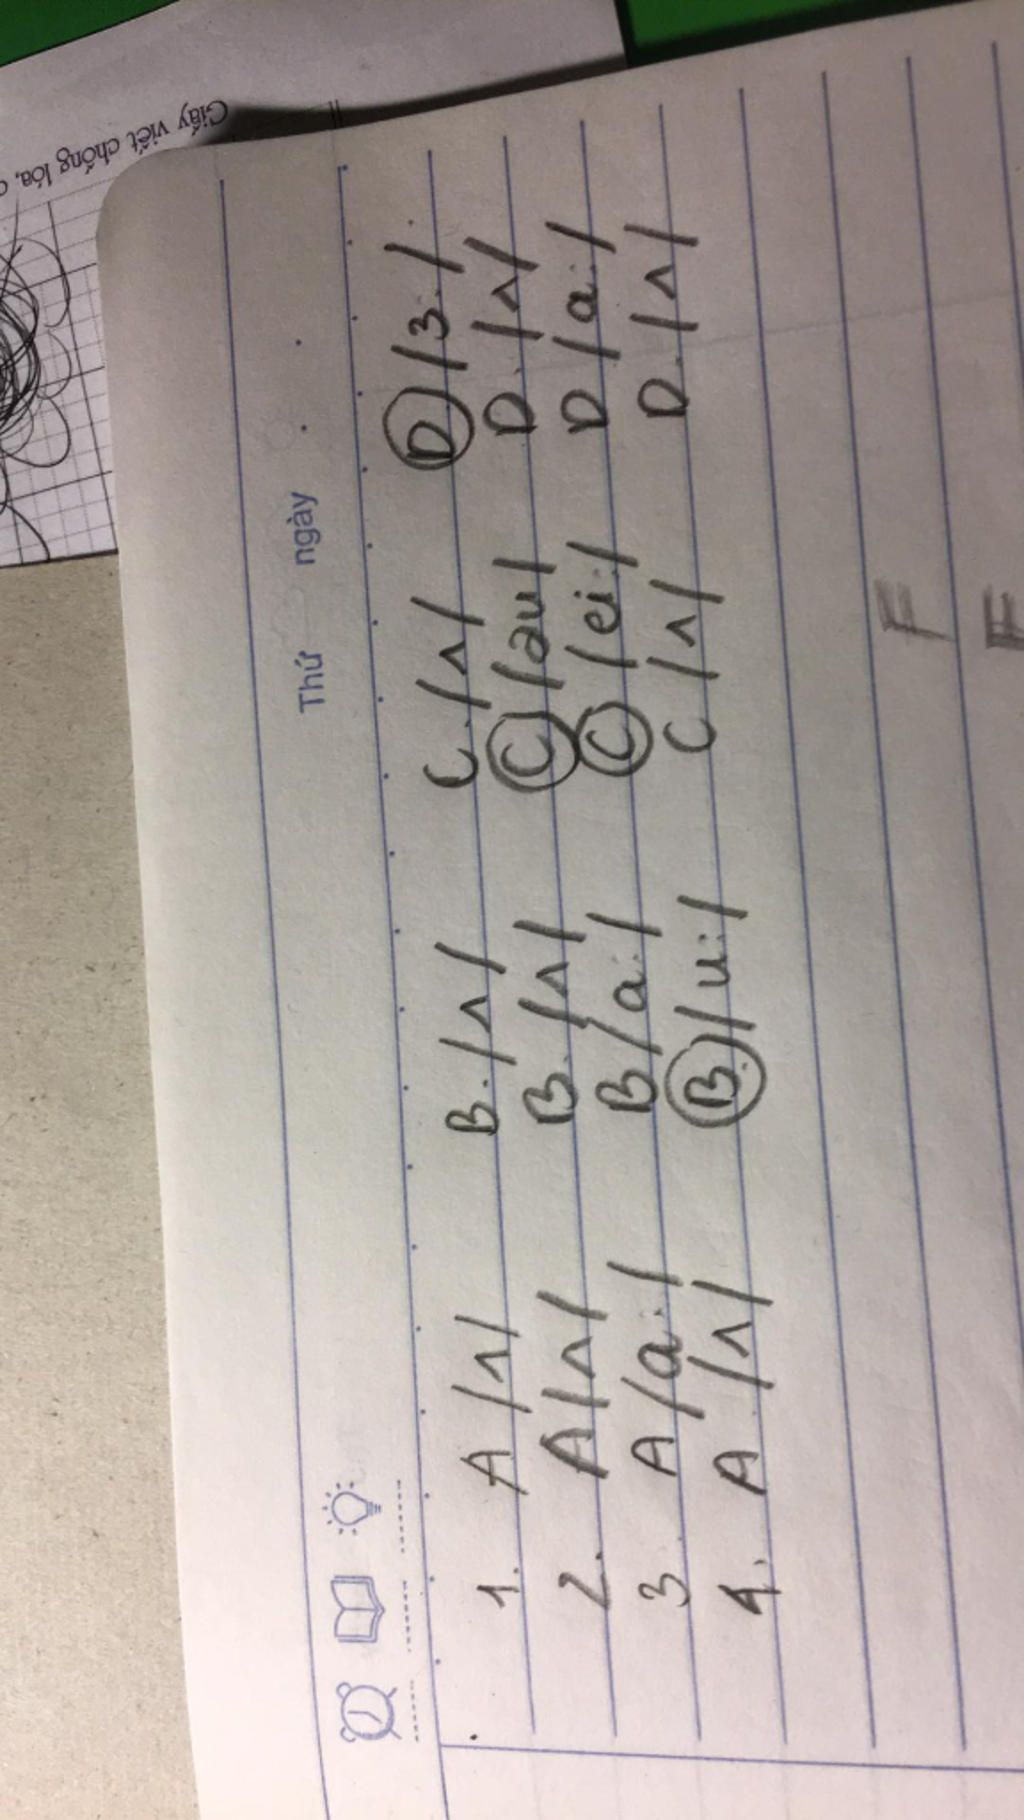 Giấy viết chống lóa, c
Thứ ngày
1. A /ʌ/ B. /ʌ/ C. /ʌ/ D /ɜ:/
2. A /ʌ/ B. /ʌ/ C /əu/ D. /ʌ/
3 A /a:/ B /a:/ C /ei:/ D /a:/
4. A /ʌ/ B. /u:/ C /ʌ/ D. /ʌ/
F
F